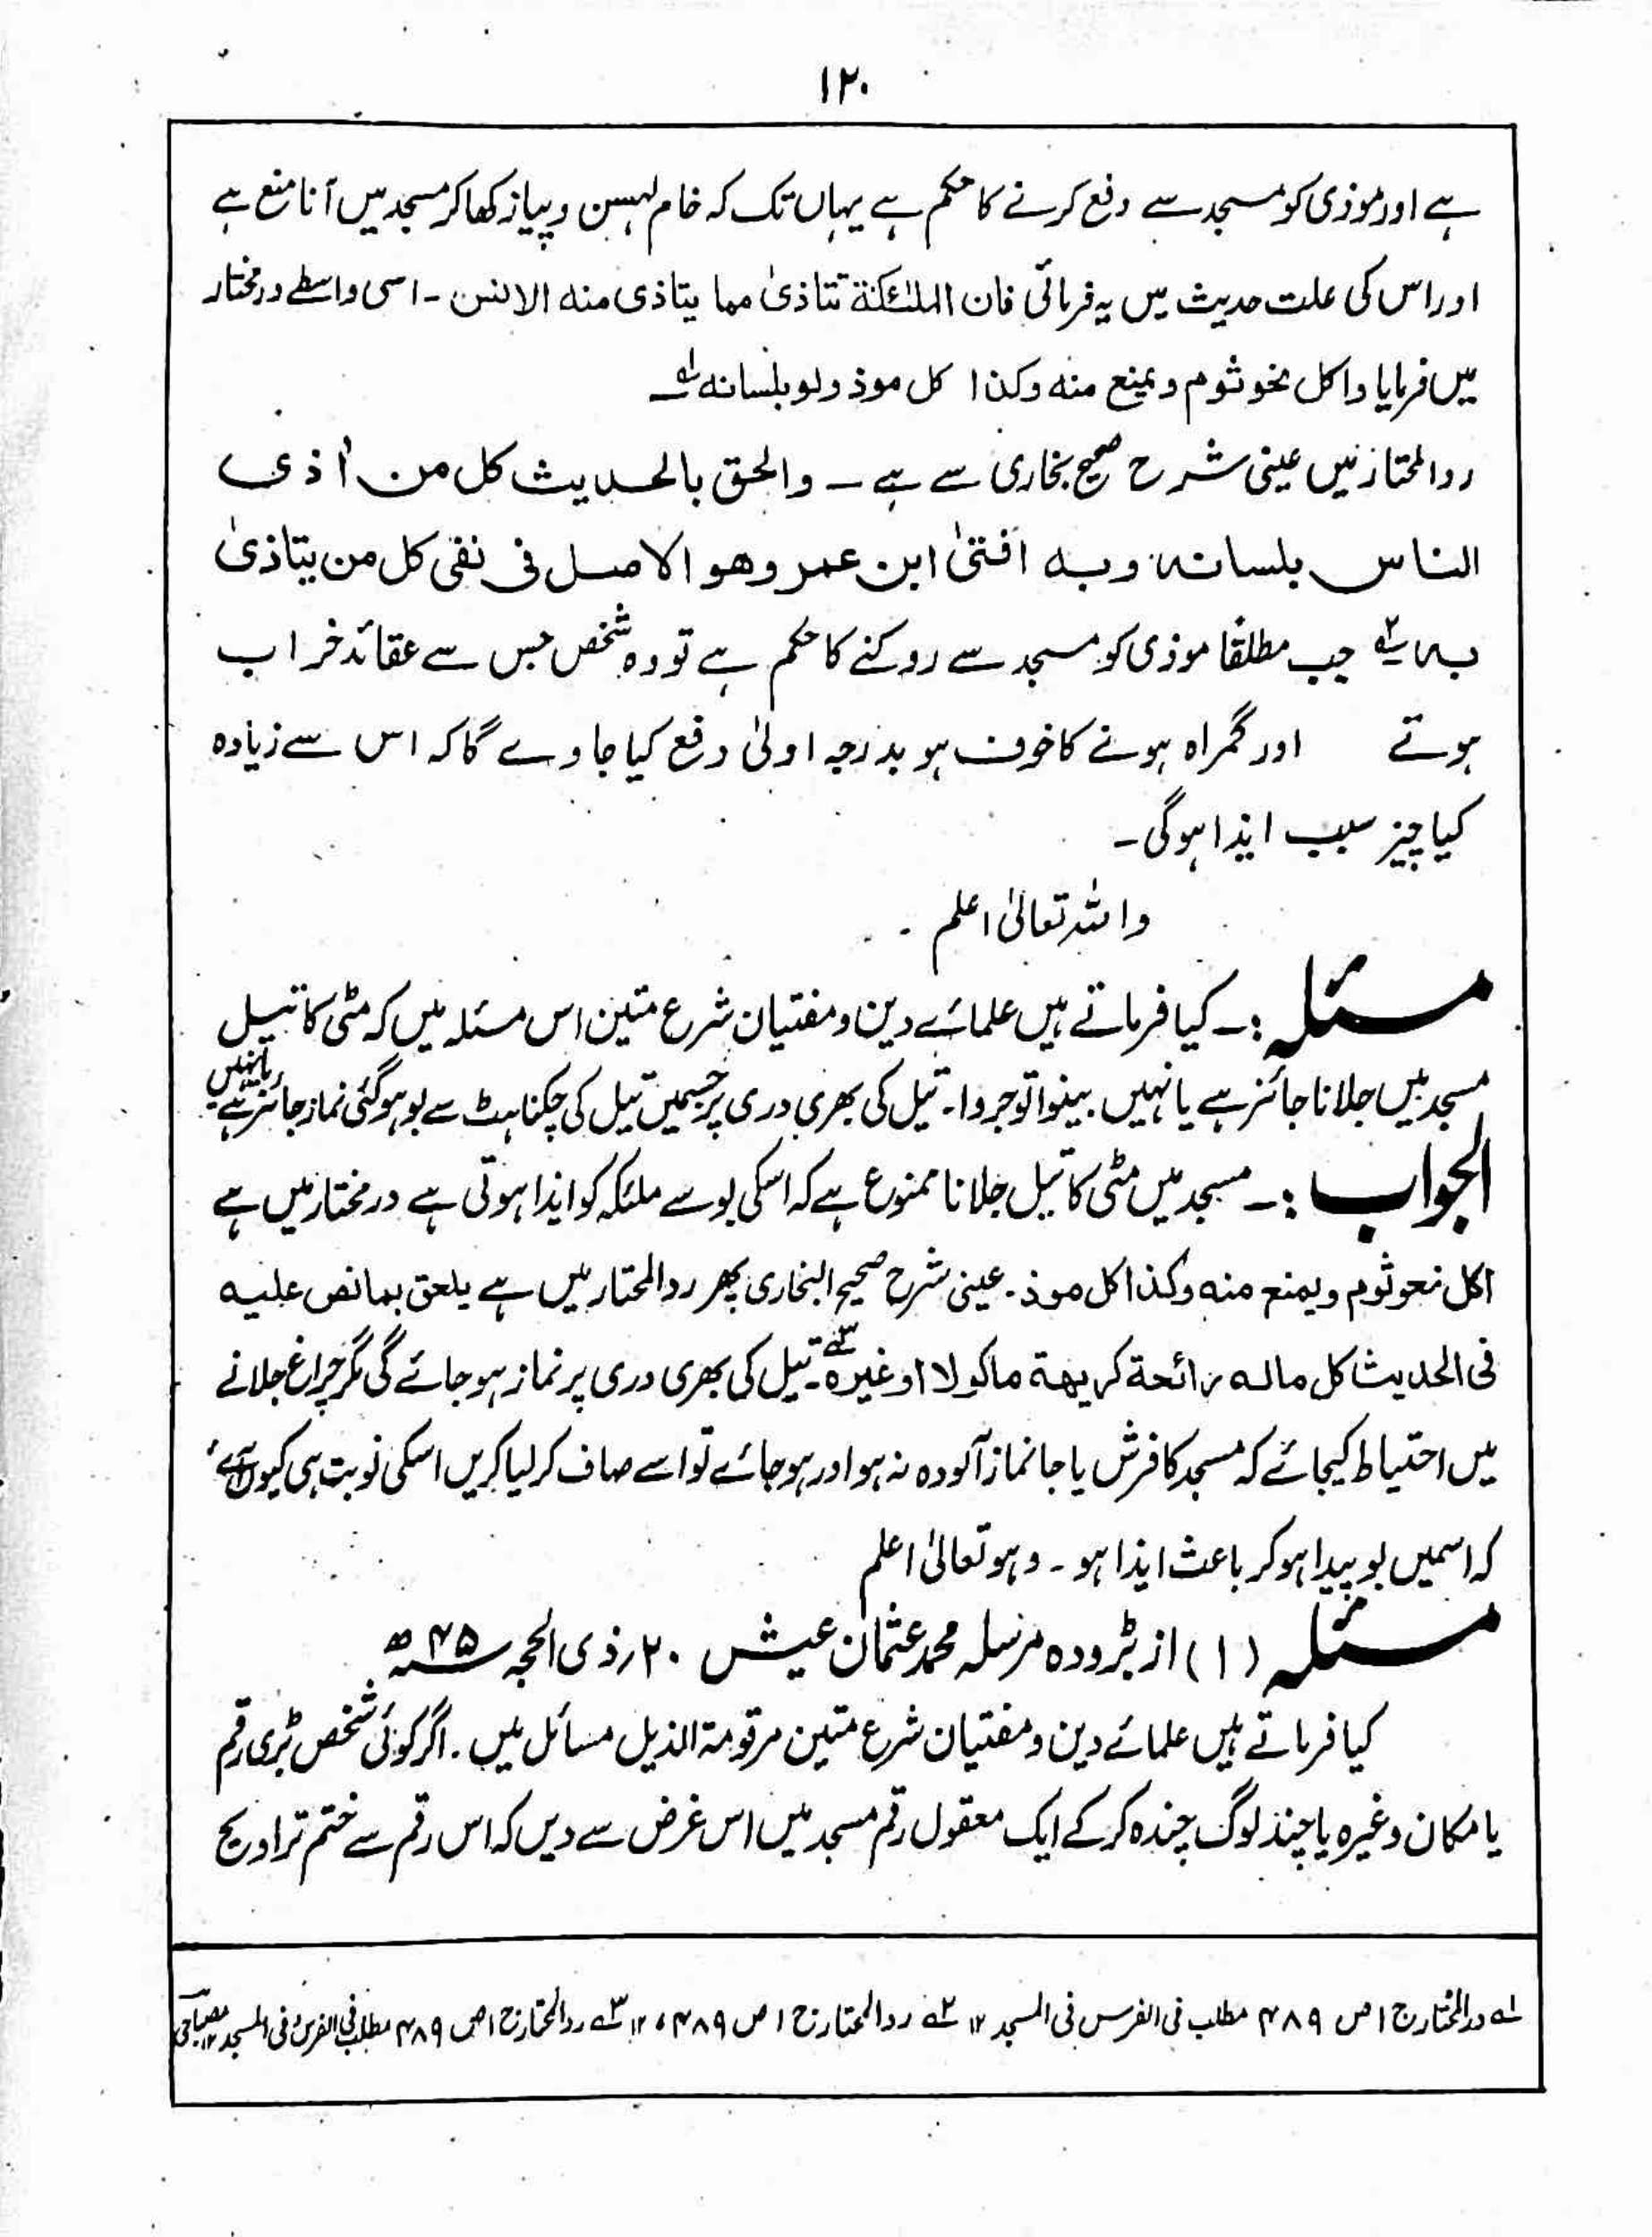 ۱۲۰
ہے اور موذی کو مسجد سے دفع کرنے کا حکم ہے یہاں تک کہ خام لہسن و پیاز کھا کر مسجد میں آنا منع ہے
اور اس کی علت حدیث میں یہ فرمائی فان الملٰئکۃ تتاذیٰ مما یتاذی منہ الانس ۔ اسی واسطے درمختار
میں فرمایا واکل نحو ثوم ویمنع منہ وکذا کل موذ ولو بلسانہ لہ
ردالمحتار میں عینی شرح صحیح بخاری سے ہے ۔ والحق بالحدیث کل من اُذی
الناس بلسانہ وبہ افتیٰ ابن عمر وھو الاصل فی نفی کل من یتاذیٰ
بہ ۲ہ جب مطلقًا موذی کو مسجد سے روکنے کا حکم ہے تو وہ شخص جس سے عقائد خراب
ہوتے اور گمراہ ہونے کا خوف ہو بدرجہ اولیٰ دفع کیا جاوے گا کہ اس سے زیادہ
کیا چیز سبب ایذا ہوگی ۔
واللہ تعالیٰ اعلم ۔
مسئلہ :۔ کیا فرماتے ہیں علمائے دین و مفتیان شرع متین اس مسئلہ میں کہ مٹی کا تیل
مسجد میں جلانا جائز ہے یا نہیں بینوا توجروا ۔ تیل کی بھری دری پر جسمیں تیل کی چکناہٹ سے بو ہوگئی نماز جائز ہے یا نہیں
الجواب :۔ مسجد میں مٹی کا تیل جلانا ممنوع ہے کہ اسکی بو سے ملئکہ کو ایذا ہوتی ہے درمختار میں ہے
اکل نحو ثوم ویمنع منہ وکذا کل موذ ۔ عینی شرح صحیح البخاری پھر ردالمحتار میں ہے یلحق بما نص علیہ
فی الحدیث کل مالہ رائحۃ کریھۃ ماکولا او غیرہ ۳ہ ۔ تیل کی بھری دری پر نماز ہو جائے گی مگر چراغ جلانے
میں احتیاط کیجائے کہ مسجد کا فرش یا جانماز آلودہ نہ ہو اور ہوجائے تو اسے صاف کرلیا کریں اسکی نوبت ہی کیوں آئے
کہ اسمیں بو پیدا ہوکر باعث ایذا ہو ۔ وہو تعالیٰ اعلم
مسئلہ (۱) از بڑودہ مرسلہ محمد عثمان عیش ۲۰؍ ذی الحجہ سنہ ۴۵ھ
کیا فرماتے ہیں علمائے دین و مفتیان شرع متین مرقومۃ الذیل مسائل میں ۔ اگر کوئی شخص بڑی رقم
یا مکان وغیرہ یا چند لوگ چندہ کرکے ایک معقول رقم مسجد میں اس غرض سے دیں کہ اس رقم سے ختم تراویح
لہ درالمختار ج ۱ ص ۴۸۹ مطلب فی الغرس فی المسجد ۱۲ ۲ہ ردالمحتار ج ۱ ص ۴۸۹ ، ۱۲ ۳ہ ردالمحتار ج ۱ ص ۴۸۹ مطلب فی الغرس فی المسجد ۱۲ مصباحی